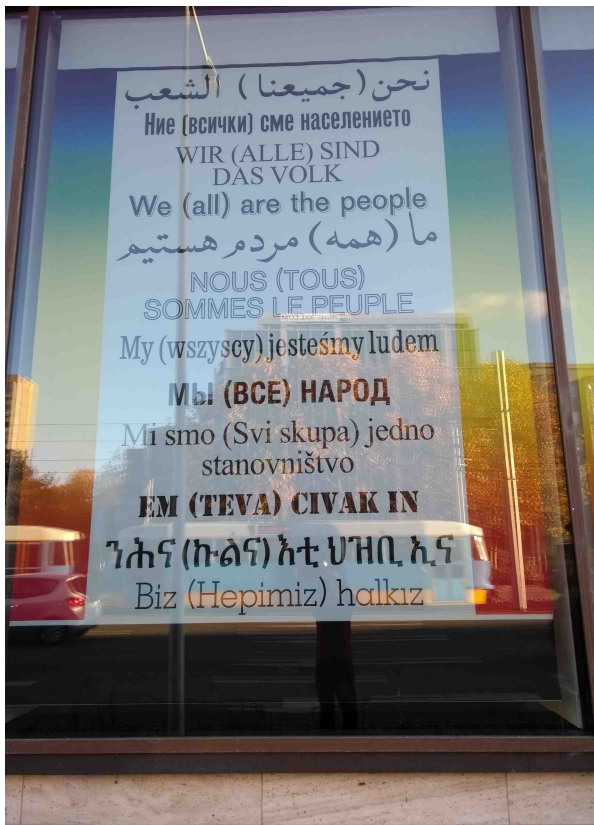 نحن (جميعنا) الشعب
Ние (всички) сме населението
WIR (ALLE) SIND
DAS VOLK
We (all) are the people
ما (همه) مردم هستیم
NOUS (TOUS)
SOMMES LE PEUPLE
My (wszyscy) jesteśmy ludem
МЫ (ВСЕ) НАРОД
Mi smo (Svi skupa) jedno
stanovništvo
EM (TEVA) CIVAK IN
ንሕና (ኩልና) እቲ ህዝቢ ኢና
Biz (Hepimiz) halkız